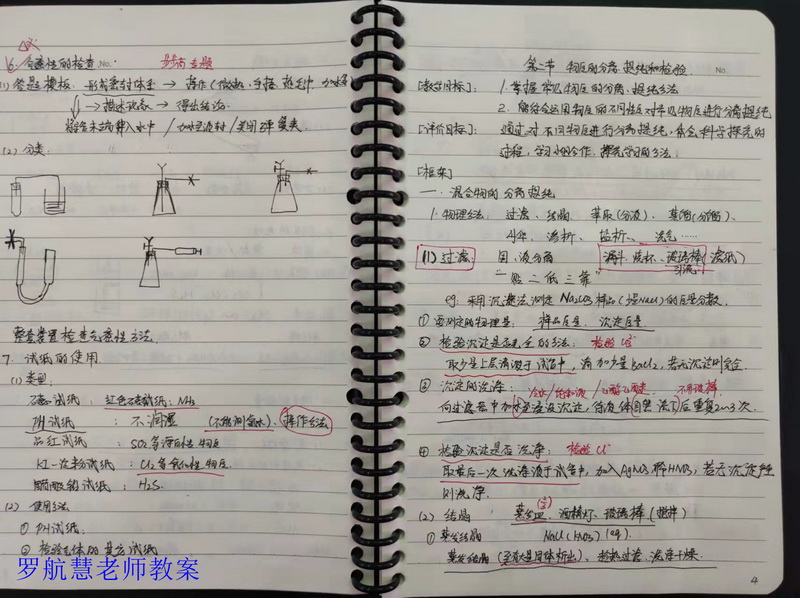 6. 气密性的检查 No.
(1) 答题模板: 形成密封体系 → 操作(微热、手捂、
→ 描述现象 → 得出结论.
(2) 分类.
整套装置检查气密性方法.
7. 试纸的使用.
(1) 类型
石蕊试纸: 红色石蕊试纸: NH3
PH试纸 : 不润湿 (不能测氯水). 操作方法
品红试纸 : SO2等漂白性物质
KI-淀粉试纸: Cl2等氧化性物质.
醋酸铅试纸 : H2S.
(2) 使用方法
① PH试纸.
② 检验气体的是否试纸
罗航慧老师教案
第二节 物质的分离、提纯和检验. No.
[教学目标]: 1. 掌握常见物质的分离、提纯方法
2. 能综合运用物质的不同性质对常见物质进行分离提纯
[评价目标]: 通过对不同物质进行分离提纯, 体会科学探究的
过程, 学习小组合作、探究学习的方法;
[框架]
一. 混合物的分离提纯
1. 物理方法: 过滤、结晶、萃取(分液)、蒸馏(分馏)、
升华、渗析、盐析、洗气……
(1) 过滤: 固、液分离 漏斗、烧杯、玻璃棒(滤纸)
引流
"一贴二低三靠"
eg: 采用沉淀法测定Na2CO3样品(含NaCl)的质量分数.
① 要测定的物理量: 样品质量、沉淀质量
② 检验沉淀是否完全的方法:
取少量上层清液于试管中, 滴加少量BaCl2, 若无沉淀则完全.
③ 沉淀的洗涤: 冷水/饱和液/乙醇乙醚 不用搅拌
向过滤器中加水至浸没沉淀, 待液体自然流下后重复2~3次.
④ 检验沉淀是否洗净: 检验Cl-
取最后一次洗涤液于试管中, 加入AgNO3稀HNO3, 若无沉淀产生
则洗净.
(2) 结晶: 蒸发皿、酒精灯、玻璃棒(搅拌)
① 蒸发结晶 NaCl (KNO3) (aq).
蒸发结晶(至有大量固体析出)、趁热过滤、洗涤干燥.
4